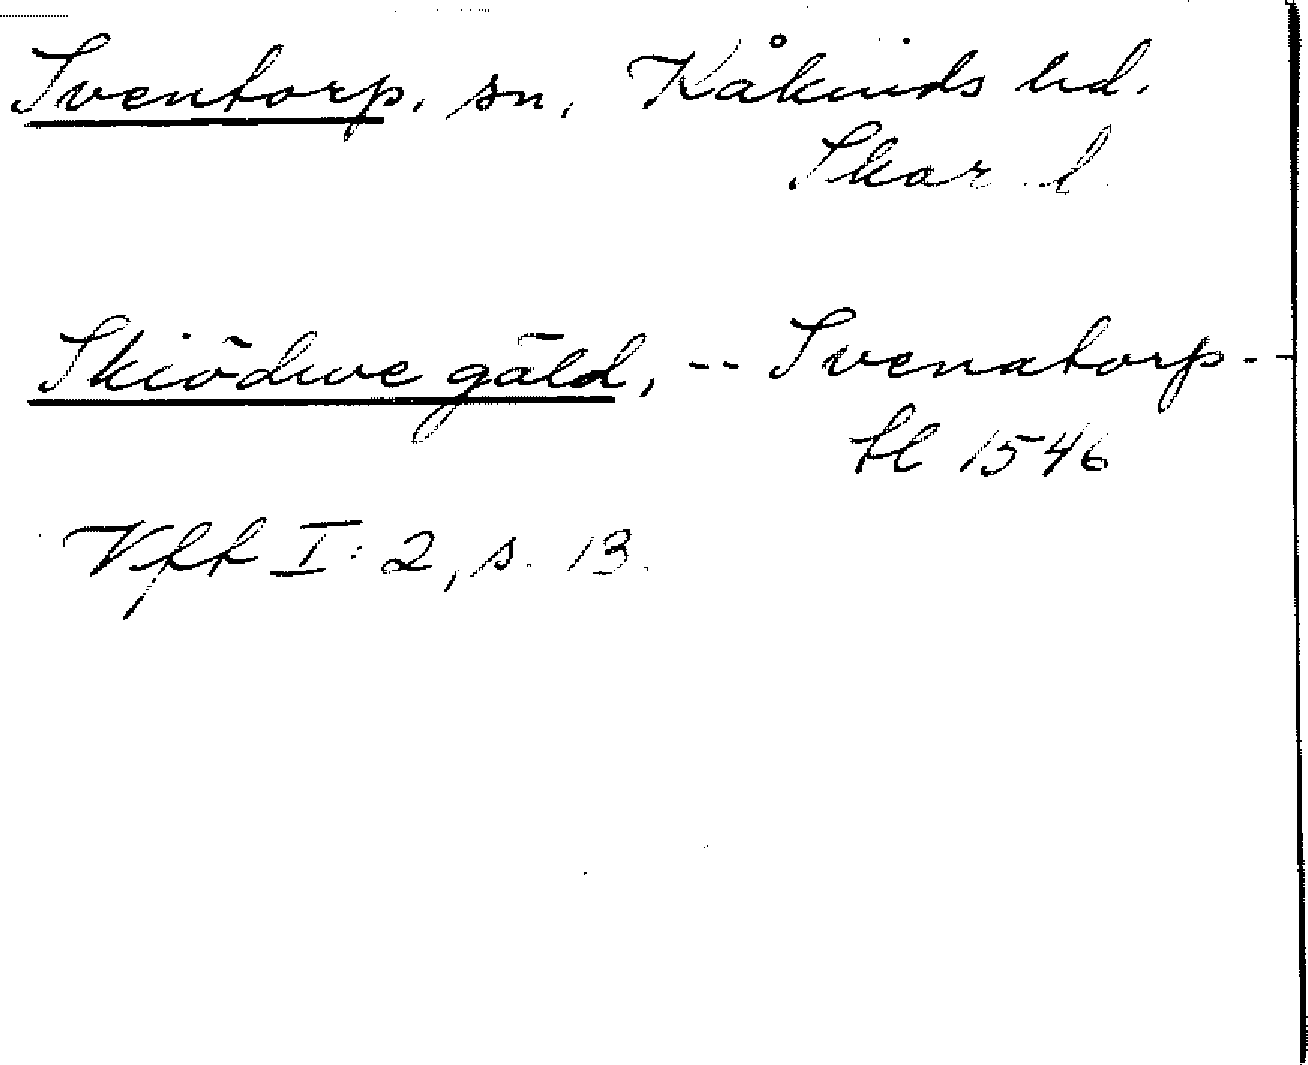 Sventorp. sn. Kåkinds hd.
Skar. l.
Skiōdwe gāld, -- Svenatorp --
tl 1546
Vfft I: 2, s. 13.